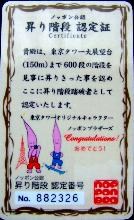 ノッポン公認
昇り階段 認定証
Certificate
貴殿は、東京タワー大展望台
(150m)まで600段の階段を
見事に昇りきった事を認め
ここに昇り階段踏破者として
認定いたします。
東京タワーオリジナルキャラクター
ノッポンブラザーズ
Congratulations!
おめでとう!
ノッポン公認
昇り階段 認定番号
No. 882326